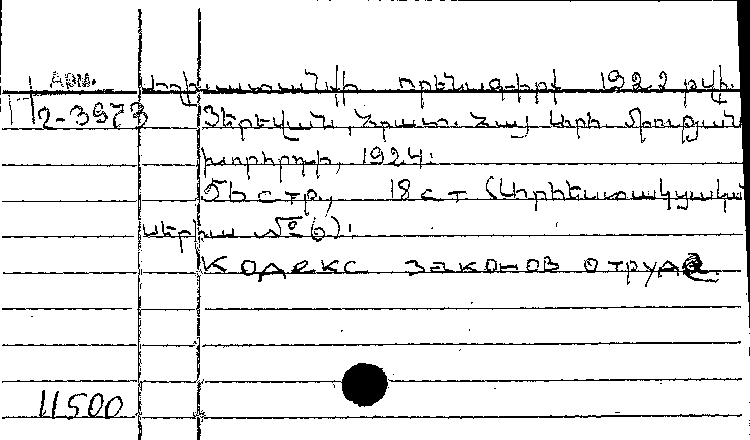 АРМ.
Աշխատանքի որենսգիրք 1922 թվի.
П 2-3973
Յերեվան, Հրատ. Հայ Արհ. Միության
խորհրդի, 1924։
56 стр., 18 ст (Արհեստակցական
սերիա № 6)։
Кодекс законов о труде.
11500